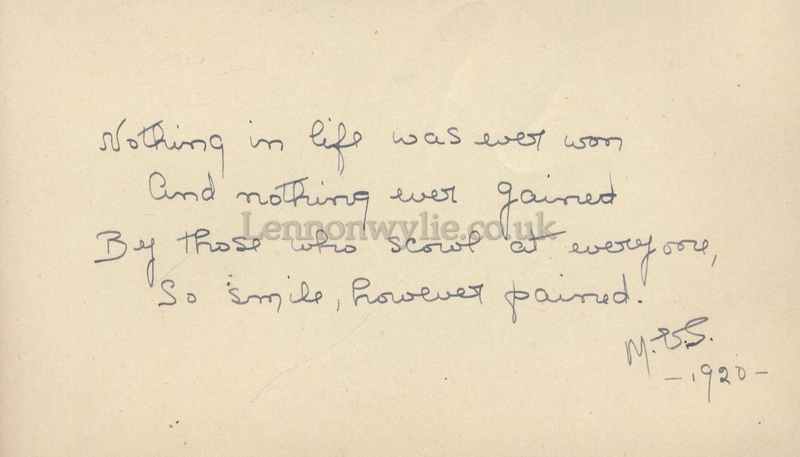 Nothing in life was ever won
And nothing ever gained
Lennonwylie.co.uk
By those who scowl at everyone,
So smile, however pained.
M.E.S.
-1920-